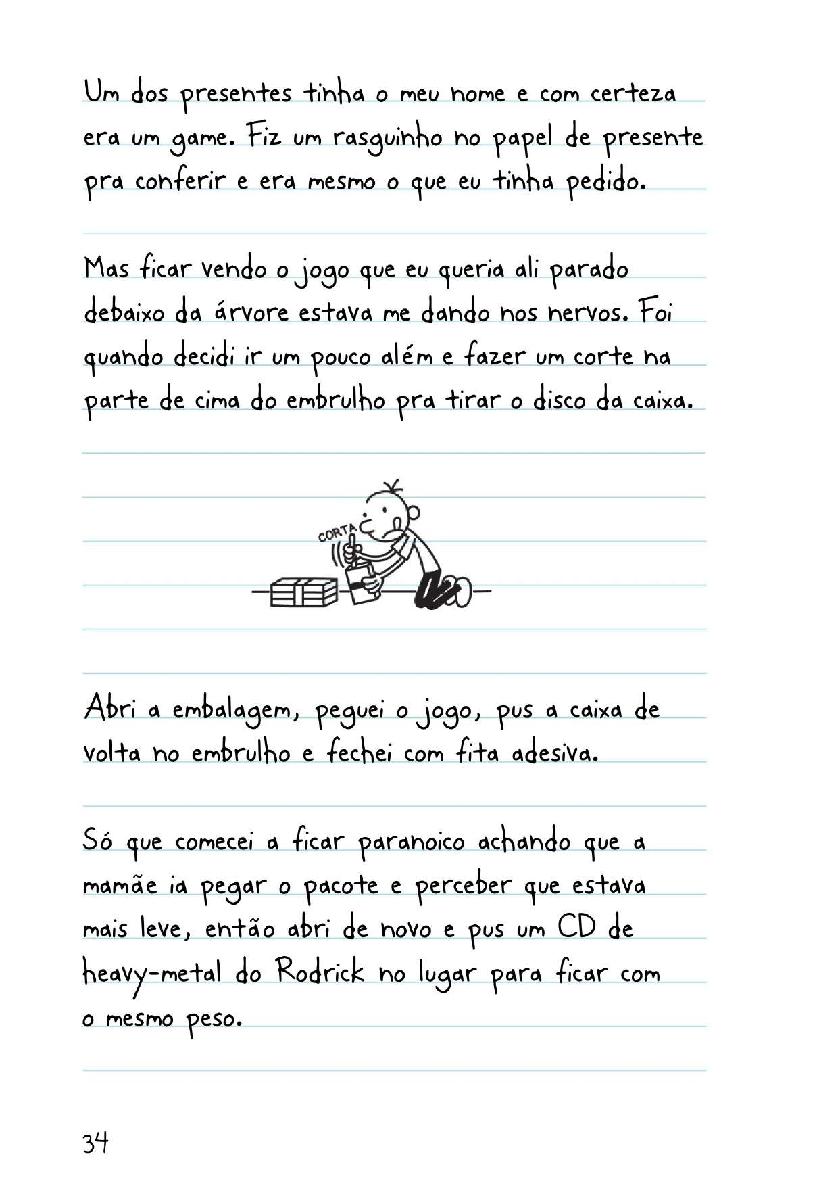 Um dos presentes tinha o meu nome e com certeza
era um game. Fiz um rasguinho no papel de presente
pra conferir e era mesmo o que eu tinha pedido.
Mas ficar vendo o jogo que eu queria ali parado
debaixo da árvore estava me dando nos nervos. Foi
quando decidi ir um pouco além e fazer um corte na
parte de cima do embrulho pra tirar o disco da caixa.
CORTA
Abri a embalagem, peguei o jogo, pus a caixa de
volta no embrulho e fechei com fita adesiva.
Só que comecei a ficar paranoico achando que a
mamãe ia pegar o pacote e perceber que estava
mais leve, então abri de novo e pus um CD de
heavy-metal do Rodrick no lugar para ficar com
o mesmo peso.
34